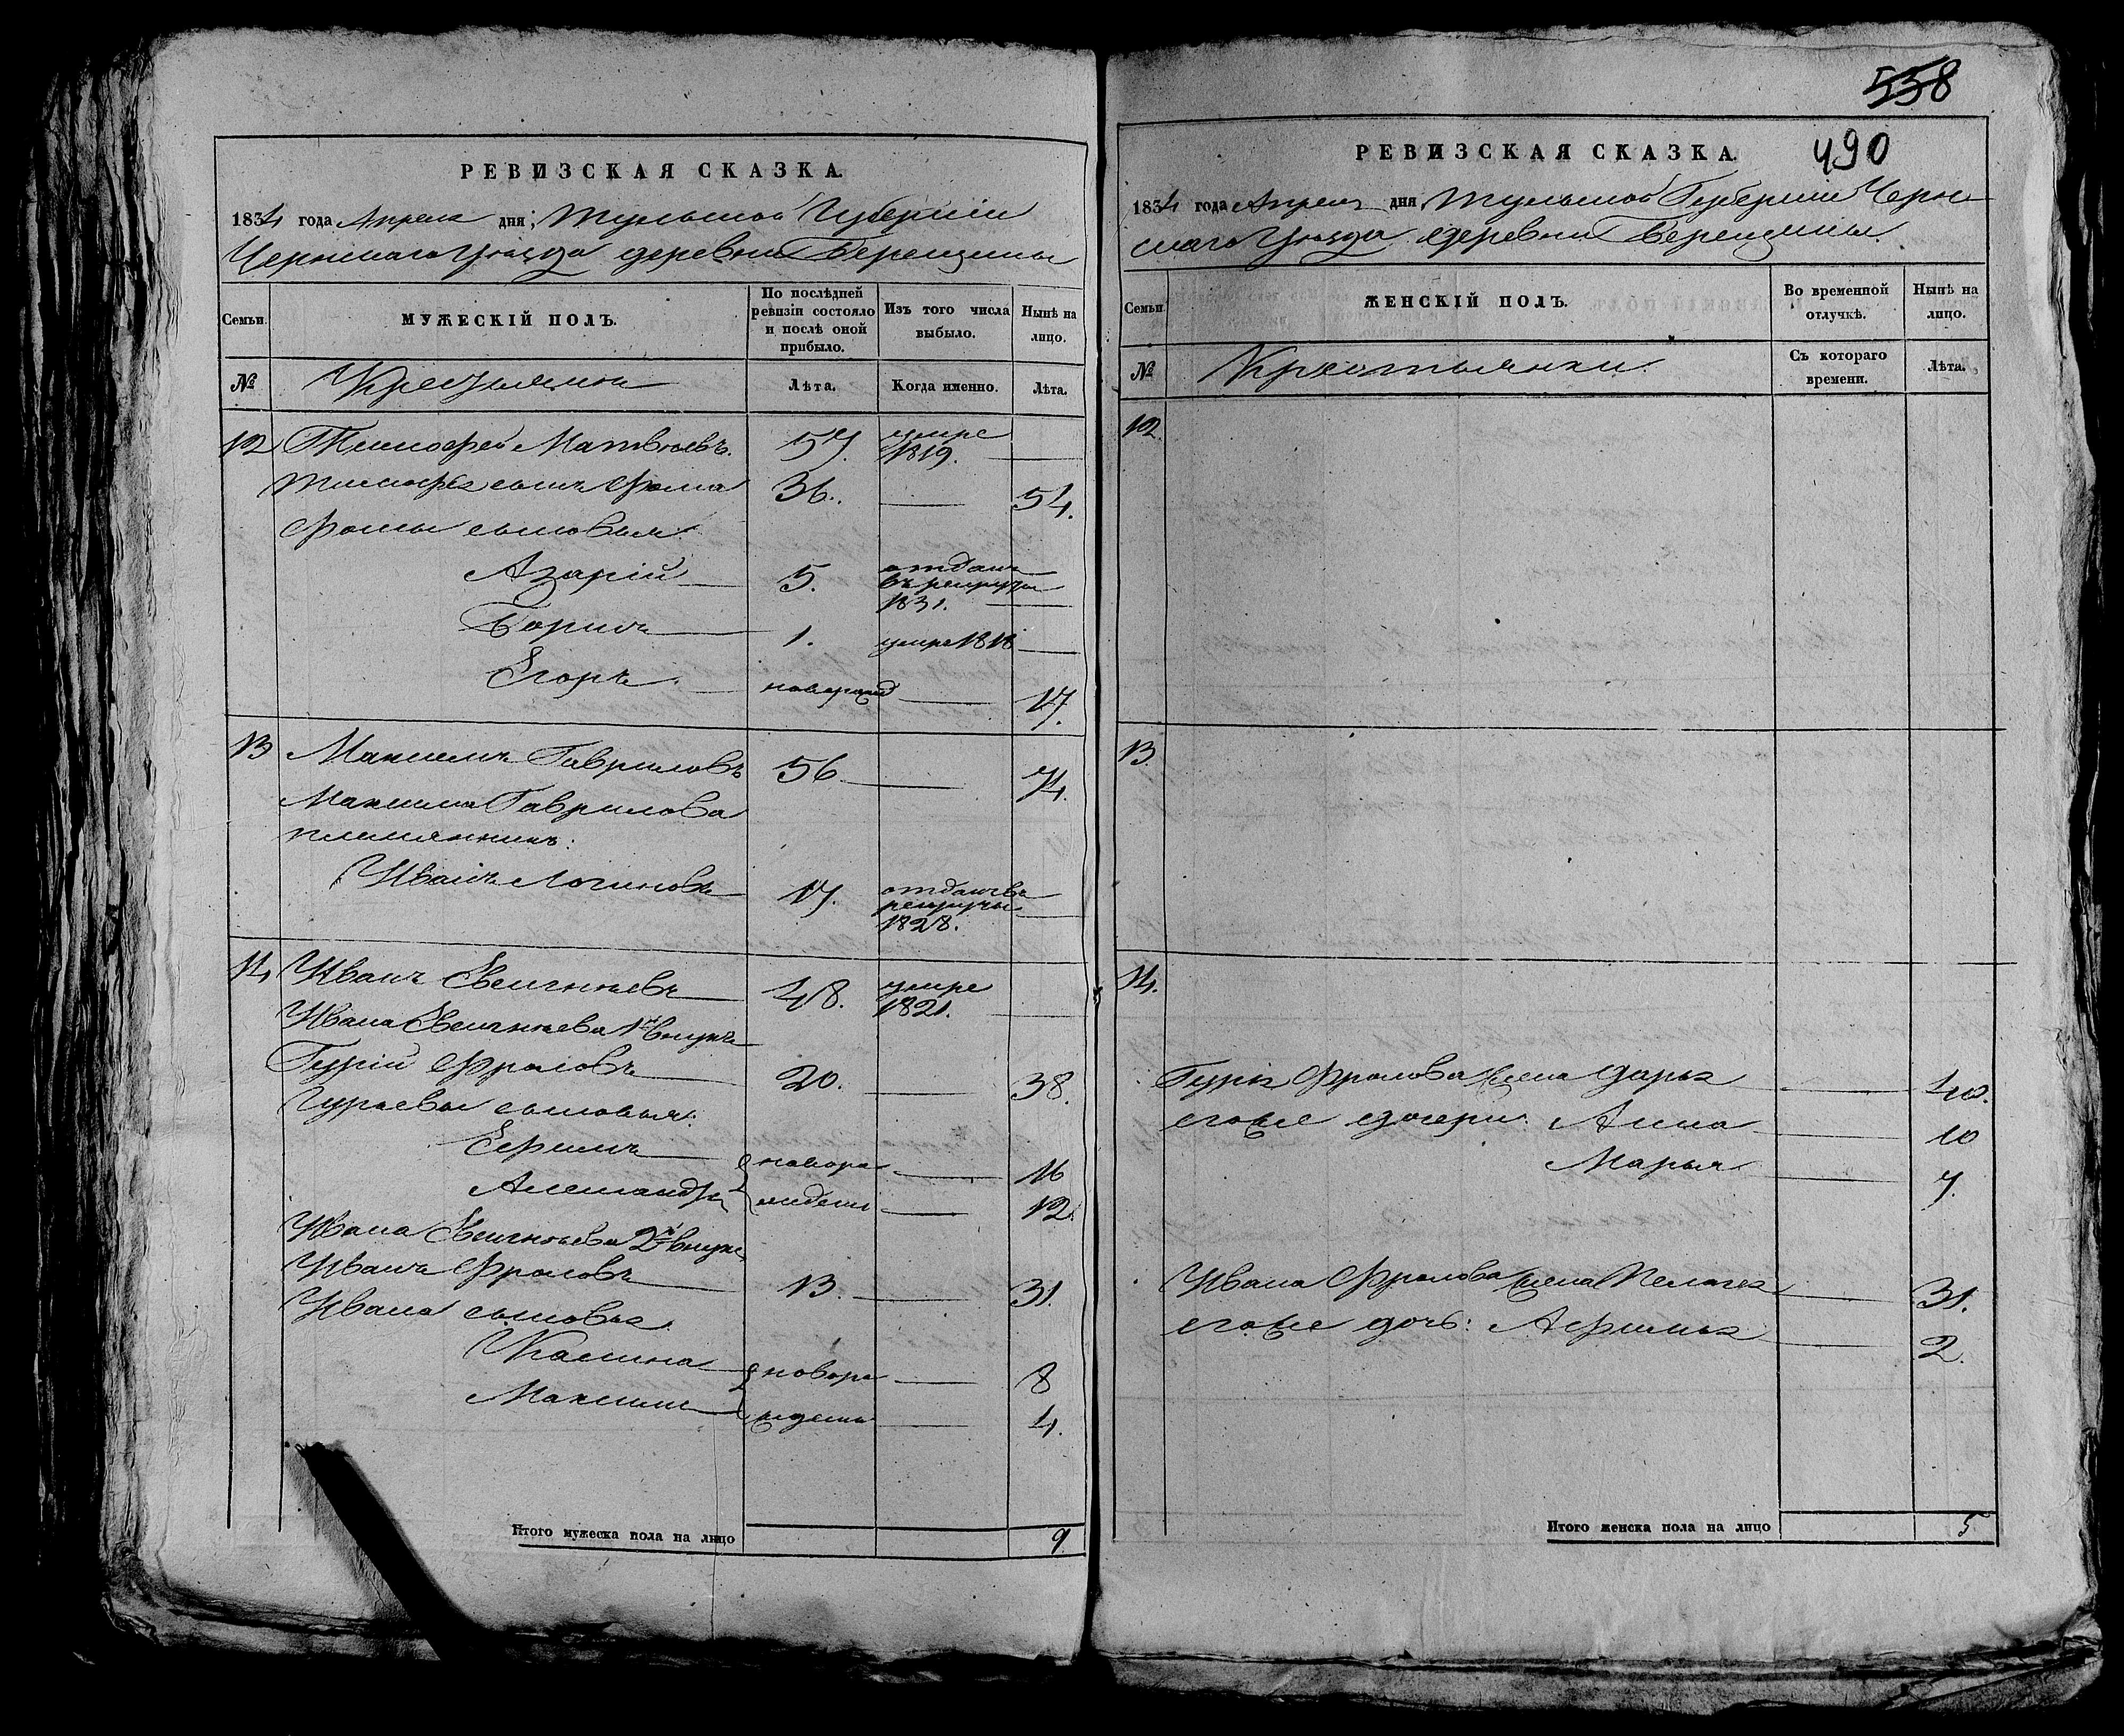 558
РЕВИЗСКАЯ СКАЗКА.
1834 года Апреля дня, Тульской Губерніи
Чернскаго Уѣзда деревни Берещины
Семьи.
МУЖЕСКІЙ ПОЛЪ.
По послѣдней ревизіи состояло и послѣ оной прибыло.
Изъ того числа выбыло.
Нынѣ на лицо.
№
Крестьяни
Лѣта.
Когда именно.
Лѣта.
12 Тимофей Матвѣевъ. 57. умре 1819.
Тимофея сынъ Фома 36. 54.
Фомы сыновья:
Азарій 5. отданъ въ рекруты 1831.
Борисъ 1. умре 1818
Егоръ. новорожд 17.
13 Максимъ Гавриловъ 56. 74.
Максима Гаврилова
племянникъ:
Иванъ Логиновъ 17. отданъ въ рекруты 1828.
14 Иванъ Евсигнѣевъ 48. умре 1821.
Ивана Евсигнѣева 1й внукъ
Гурій Фроловъ 20. 38.
Гурьевы сыновья:
Ефимъ новоро 16
Александръ жденн 12.
Ивана Евсигнѣева 2й внукъ
Иванъ Фроловъ 13. 31.
Ивана сыновья.
Калина новоро 8
Максимъ жденн 4.
Итого мужеска пола на лицо 9
РЕВИЗСКАЯ СКАЗКА.
490
1834 года Апреля дня, Тульской Губерніи Черн
скаго Уѣзда деревни Берещины.
Семьи.
ЖЕНСКІЙ ПОЛЪ.
Во временной отлучкѣ.
Нынѣ на лицо.
№
Крестьянки.
Съ котораго времени.
Лѣта.
12.
13.
14.
Гурія Фролова жена Дарья 40.
егоже дочери: Анна 10
Марья 7.
Ивана Фролова жена Пелагея 31.
егоже дочь: Афимья 2.
Итого женска пола на лицо 5